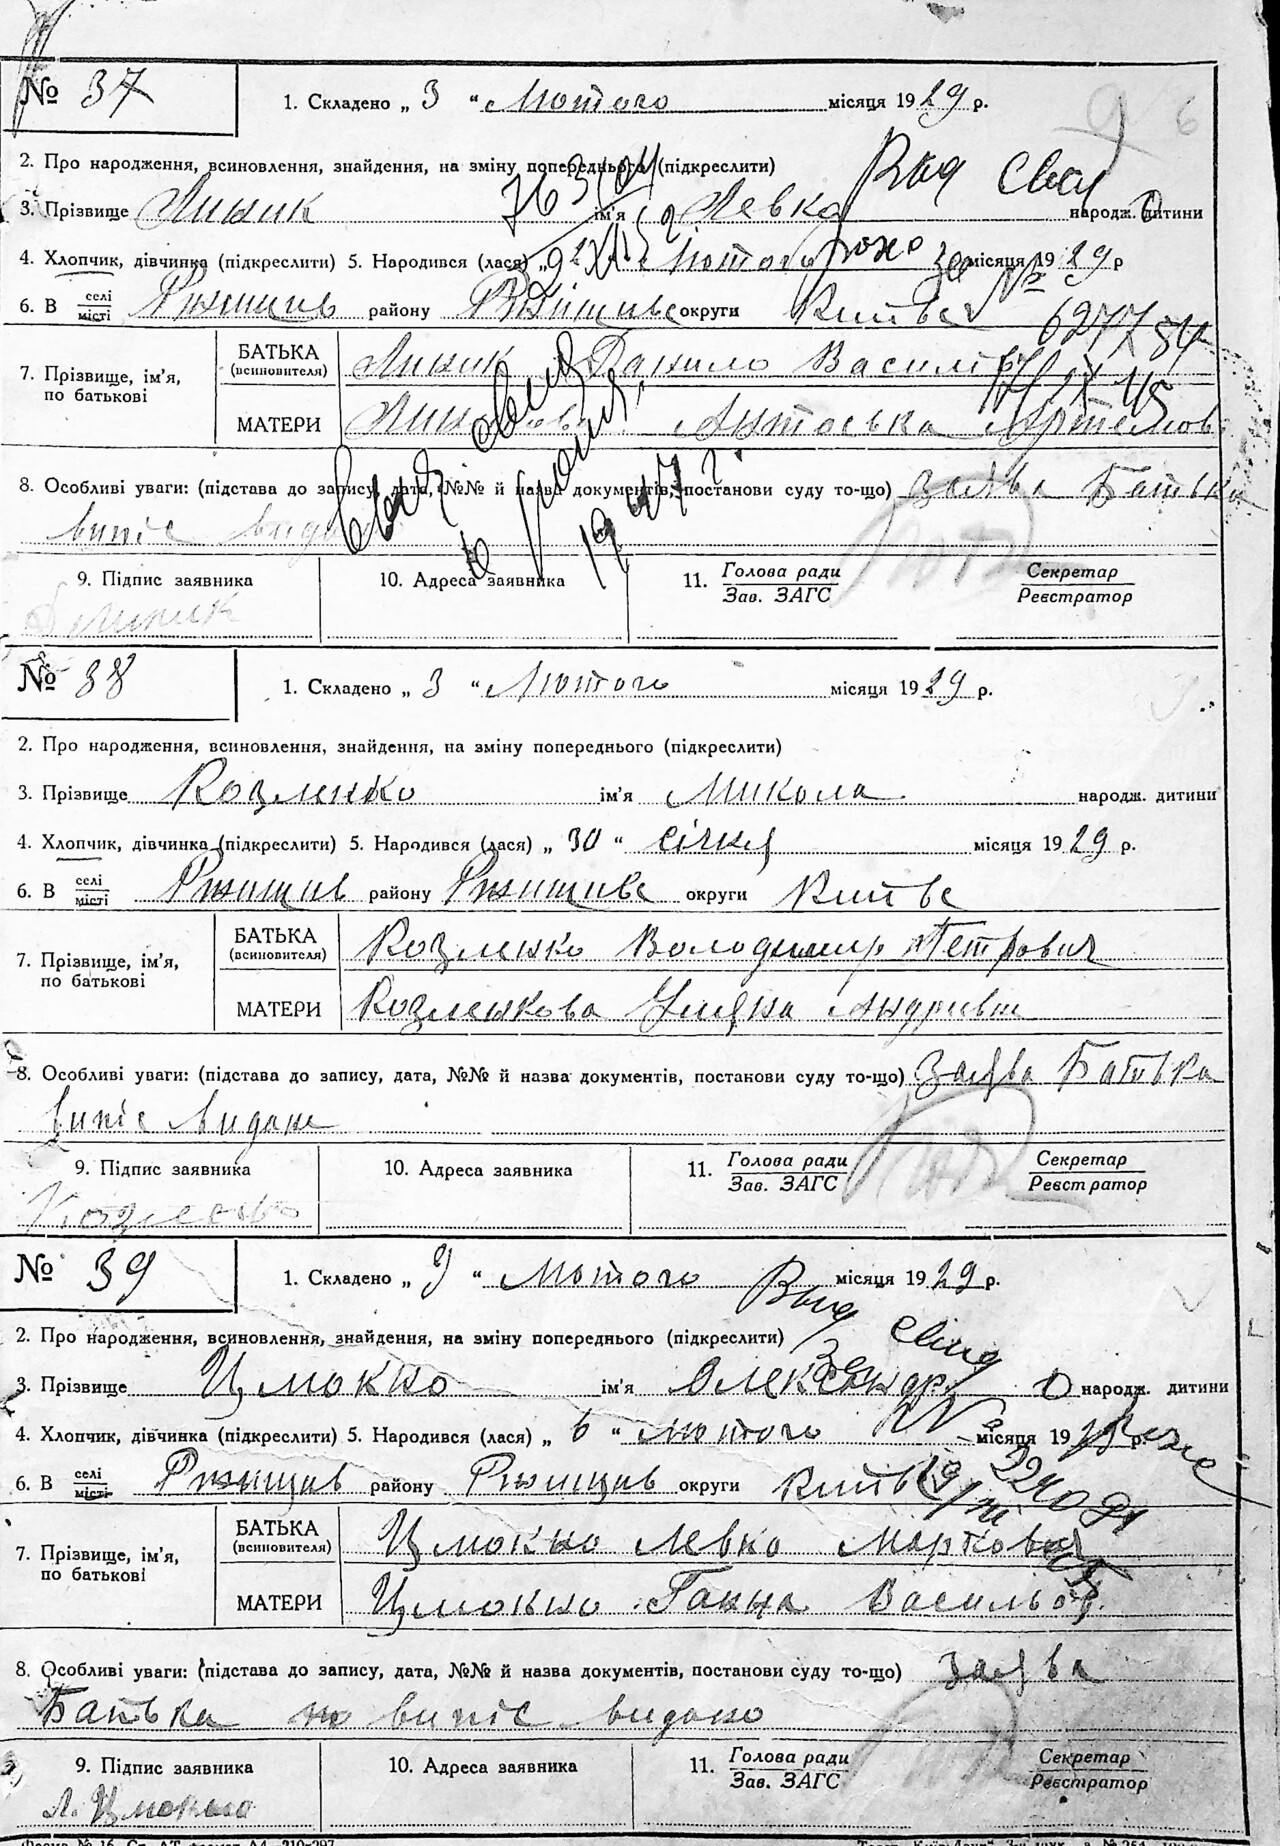 № 37
1. Складено „ 3 “ Лютого місяця 1929 р.
2. Про народження, всиновлення, знайдення, на зміну попереднього (підкреслити)
3. Прізвище Линик ім'я Левко народж. дитини
4. Хлопчик, дівчинка (підкреслити) 5. Народився (лася) „ 2 “ Лютого місяця 1929 р
6. В селі місті Ржищів району Ржищивс округи Київс
7. Прізвище, ім'я, по батькові
БАТЬКА (всиновителя) Линик Данило Василів
МАТЕРИ Антоська Артемов
8. Особливі уваги: (підстава до запису, дата, №№ й назва документів, постанови суду то-що) Заява Батька
випіс видан
9. Підпис заявника 10. Адреса заявника 11. Голова ради Зав. ЗАГС Секретар Реєстратор
Д Линик
№ 38
1. Складено „ 3 “ Лютого місяця 1929 р.
2. Про народження, всиновлення, знайдення, на зміну попереднього (підкреслити)
3. Прізвище Козленко ім'я Микола народж. дитини
4. Хлопчик, дівчинка (підкреслити) 5. Народився (лася) „ 30 “ січня місяця 1929 р.
6. В селі місті Ржищив району Ржищивс округи Київс
7. Прізвище, ім'я, по батькові
БАТЬКА (всиновителя) Козленко Володимир Петрович
МАТЕРИ Козленкова Уляна Андриевн
8. Особливі уваги: (підстава до запису, дата, №№ й назва документів, постанови суду то-що) Заява Батька
випіс видан
9. Підпис заявника 10. Адреса заявника 11. Голова ради Зав. ЗАГС Секретар Реєстратор
Козленко
№ 39
1. Складено „ 9 “ Лютого місяця 1929 р.
2. Про народження, всиновлення, знайдення, на зміну попереднього (підкреслити)
3. Прізвище Цмокно ім'я Олександр народж. дитини
4. Хлопчик, дівчинка (підкреслити) 5. Народився (лася) „ 6 “ лютого місяця 19 р.
6. В селі місті Ржищив району Ржищив округи Київс
7. Прізвище, ім'я, по батькові
БАТЬКА (всиновителя) Цмокно Левко Маркович
МАТЕРИ Цмокно Ганна Васильов.
8. Особливі уваги: (підстава до запису, дата, №№ й назва документів, постанови суду то-що) Заява
Батька випіс видано
9. Підпис заявника 10. Адреса заявника 11. Голова ради Зав. ЗАГС Секретар Реєстратор
Л. Цмокно